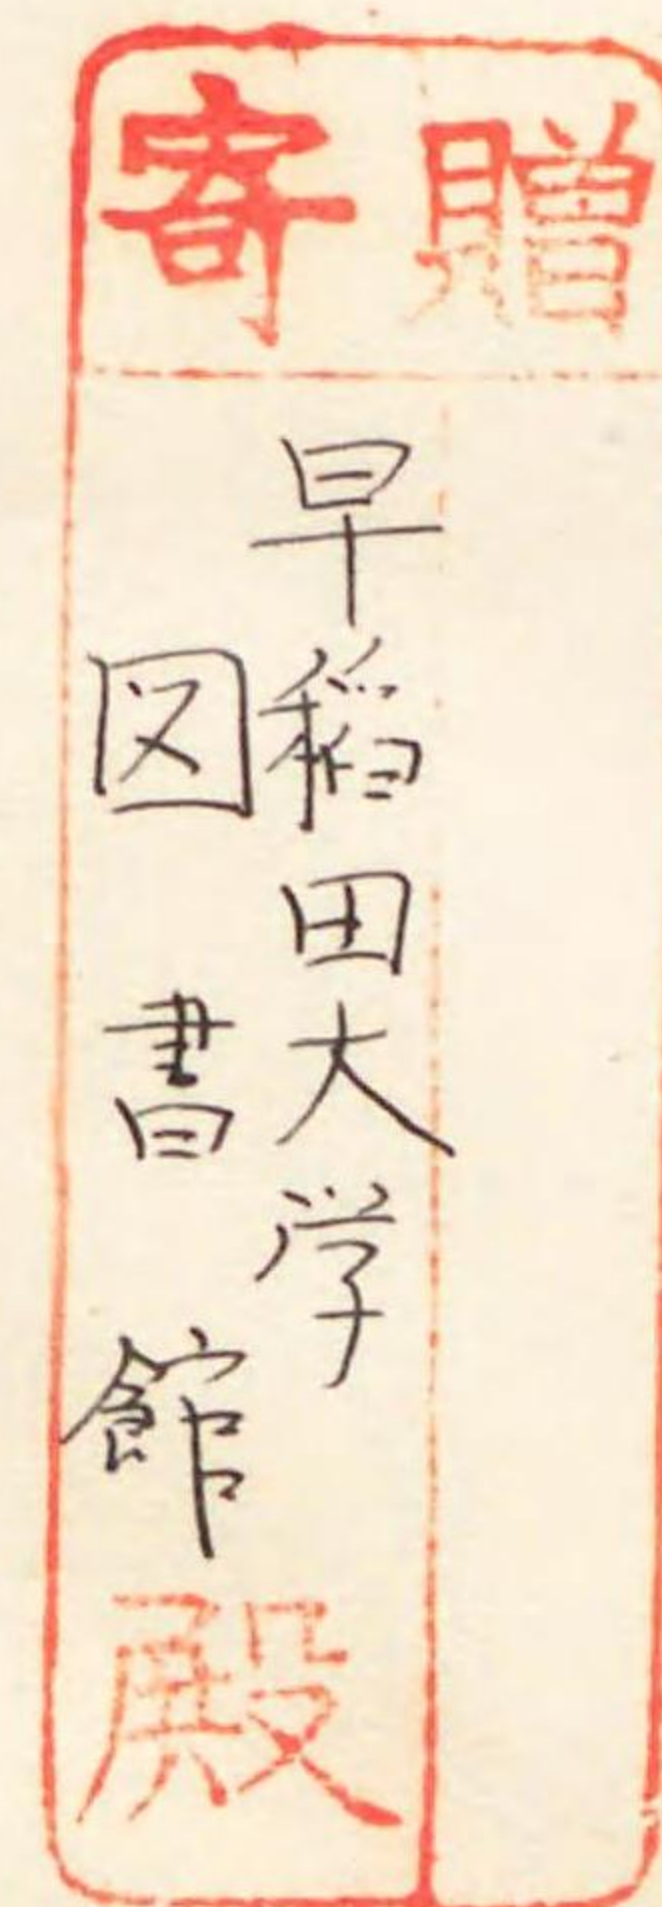 寄贈
早稲田大学
図書館
殿